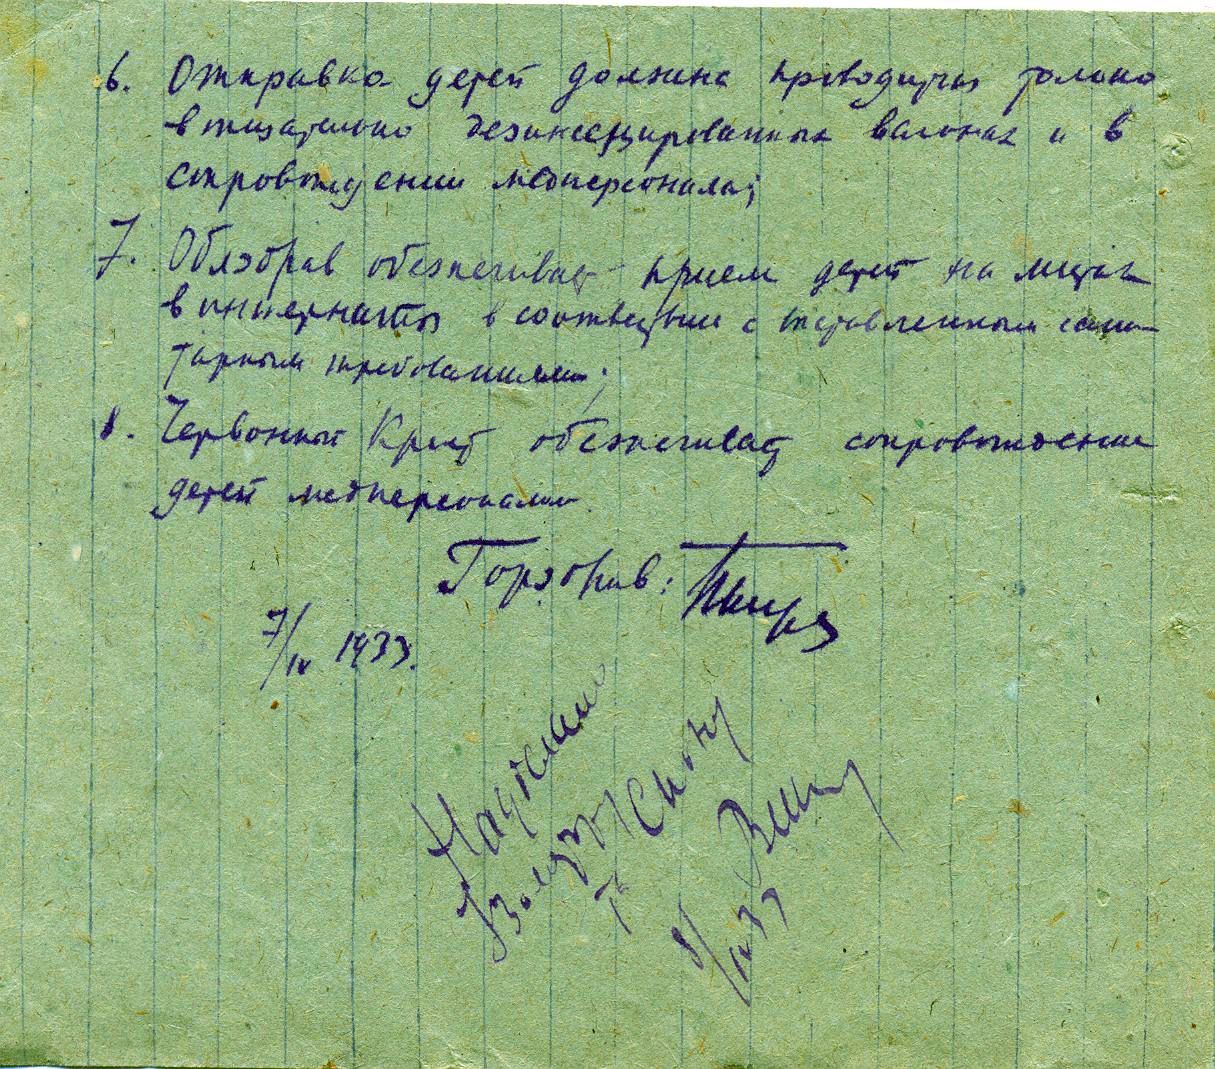 6. Отправка детей должна проводиться только
в тщательно дезинсецированных вагонах и в
сопровождении медперсонала;
7. Облздрав обезпечивает прием детей на местах
в интернаты в соответствии с поставленным сани-
тарным требованиям;
8. Червонный Крест обезпечивает сопровождение
детей медперсоналом.
Горздрав:
7/IV 1933.
8/IV 33